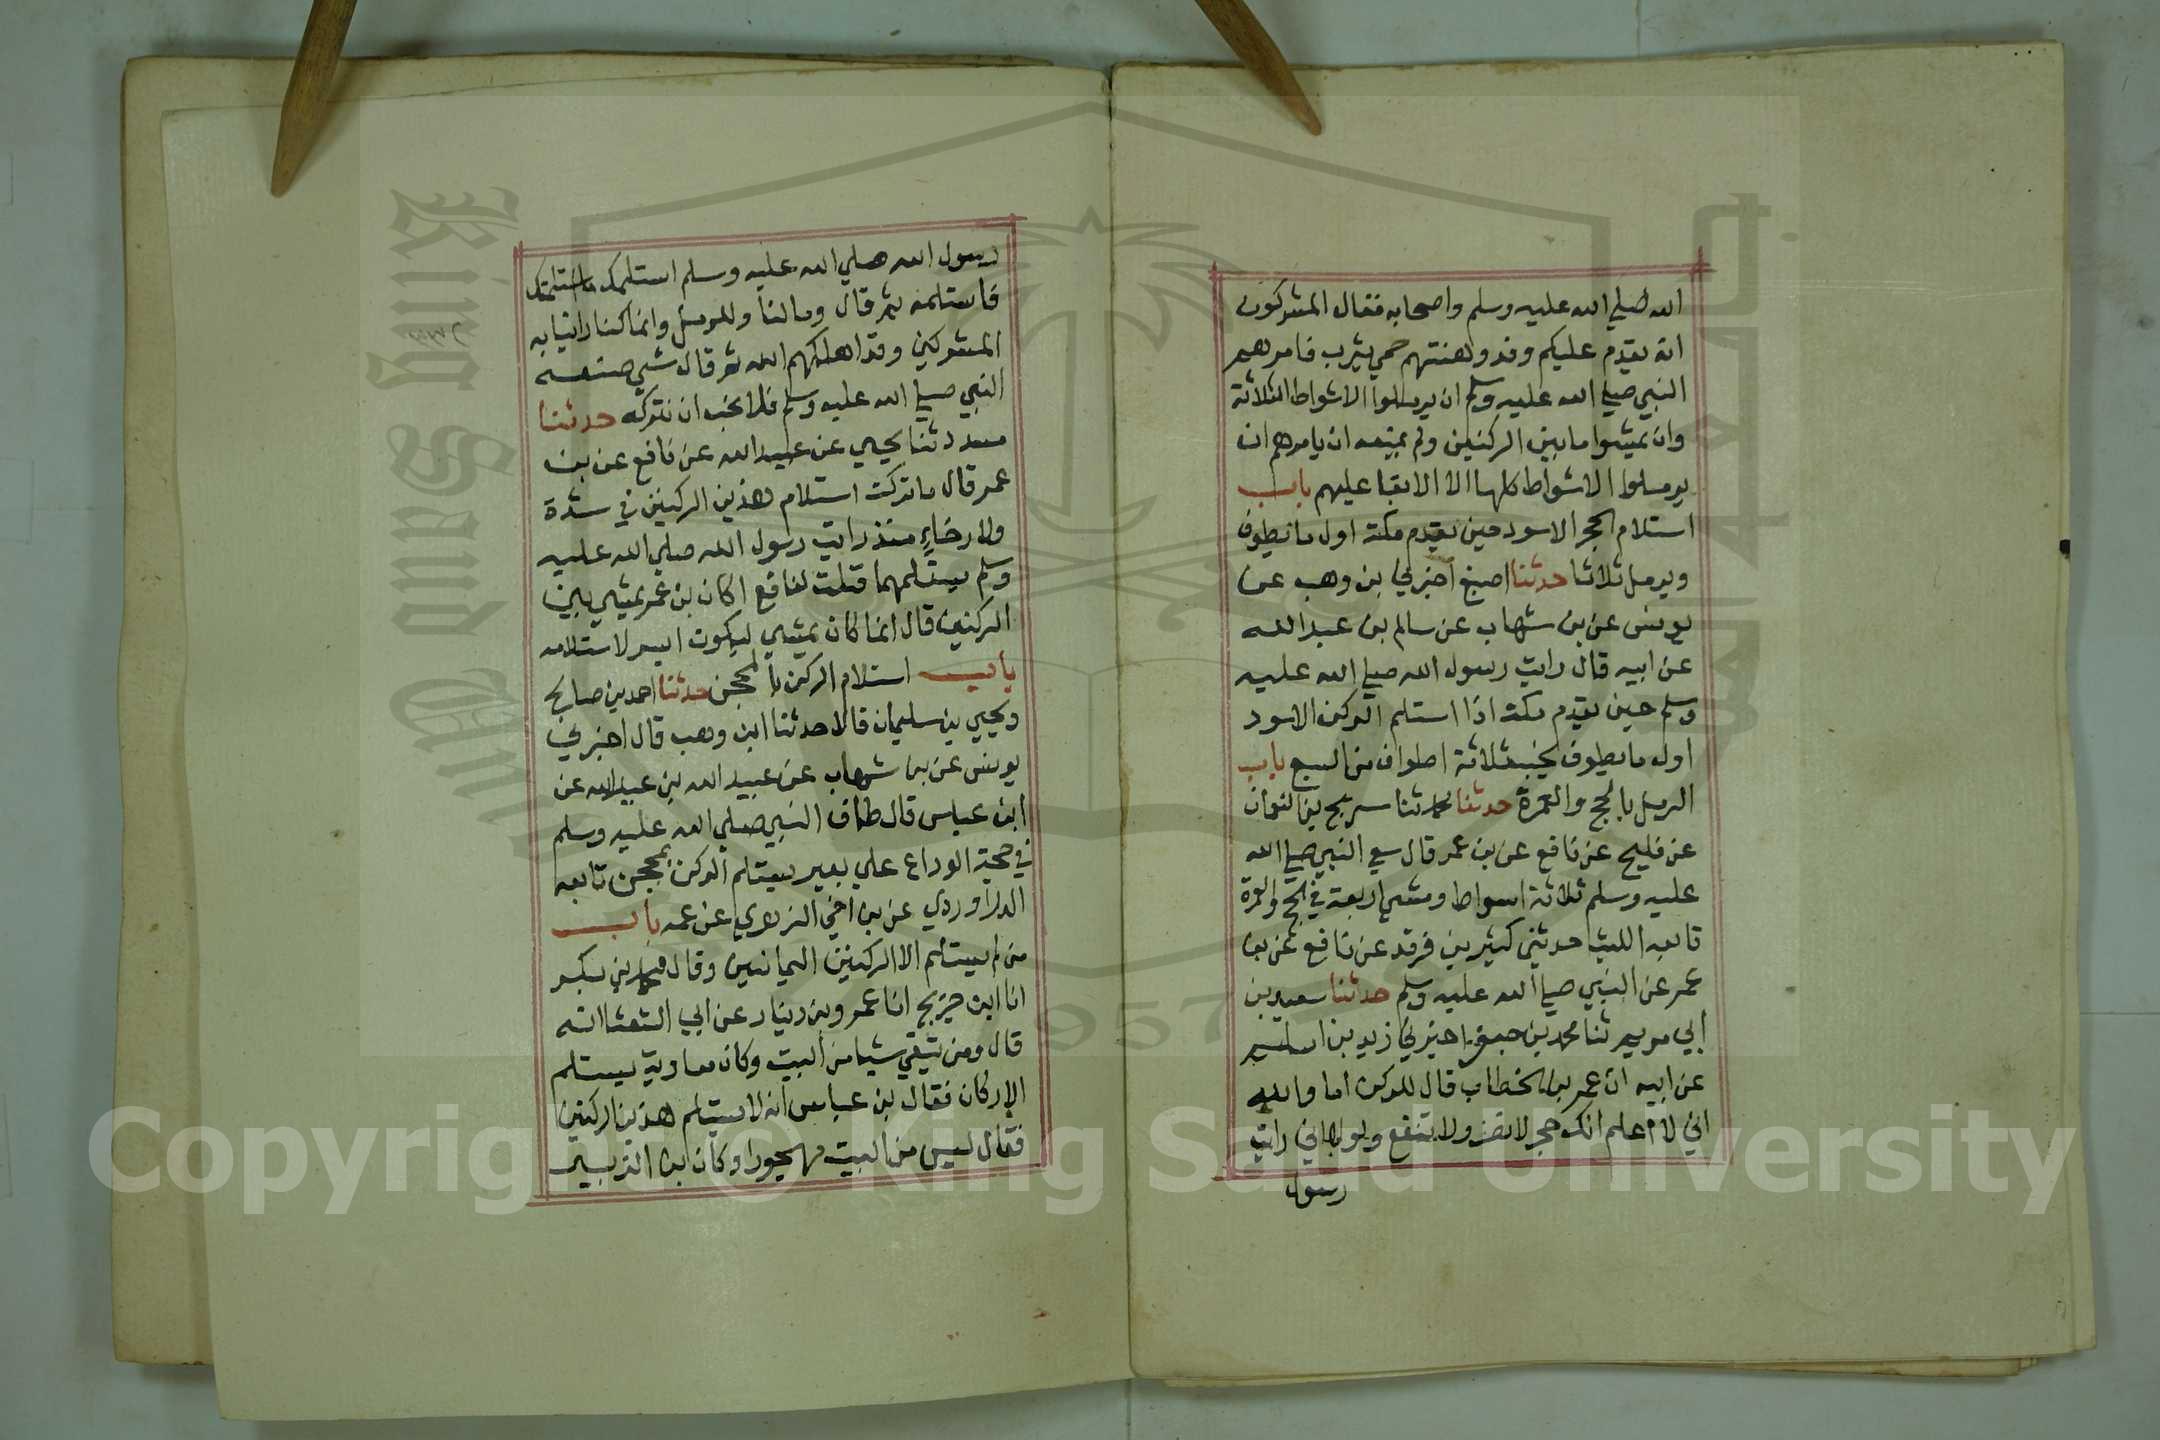 الله صلي الله عليه وسلم واصحابه فقال المشركون
انه يقدم عليكم وقد وهنتهم حمي يثرب فامرهم
النبي صلي الله عليه وسلم ان يرملوا الاشواط الثلاثة
وان يمشوا ما بين الركنين ولم يمنعه ان يامرهم ان
يرملوا الاشواط كلها الا الابقا عليهم باب
استلام الحجر الاسود حين يقدم مكة اول ما يطوف
ويرمل ثلاثا حدثنا اصبغ اخبرني بن وهب عن
يونس عن بن شهاب عن سالم بن عبد الله
عن ابيه قال رايت رسول الله صلي الله عليه
وسلم حين يقدم مكة اذا استلم الركن الاسود
اول ما يطوف يخب ثلاثة اطواف من السبع باب
الرمل بالحج والعمرة حدثنا محمد ثنا سريج بن النعمان
عن فليح عن نافع عن بن عمر قال سعي النبي صلي الله
عليه وسلم ثلاثة اسواط ومشي اربعة في الحج والعمرة
تابعه الليث حدثني كثير بن فرقد عن نافع عن بن
عمر عن النبي صلي الله عليه وسلم حدثنا سعيد بن
ابي مريم ثنا محمد بن جعفر اخبرني زيد بن اسلم
عن ابيه ان عمر بن الخطاب قال للركن اما والله
اني لا اعلم انك حجر لا تضر ولا تنفع ولولا اني رايت
رسول
رسول الله صلي الله عليه وسلم استلمك ما استلمتك
فاستلمه ثم قال وما لنا وللرمل وانما كنا راينا به
المشركين وقد اهلكهم الله ثم قال شي صنعه
النبي صلي الله عليه وسلم فلا نحب ان نتركه حدثنا
مسدد ثنا يحيي عن عبيد الله عن نافع عن بن
عمر قال ما تركت استلام هذين الركنين في شدة
ولا رخاء منذ رايت رسول الله صلي الله عليه
وسلم يستلمهما قلت لنافع اكان بن عمر يمشي بين
الركنين قال انما كان يمشي ليكون ايسر لاستلامه
باب استلام الركن بالمحجن حدثنا احمد بن صالح
ويحيي بن سليمان قالا حدثنا ابن وهب قال اخبرني
يونس عن بن شهاب عن عبيد الله بن عبد الله عن
ابن عباس قال طاف النبي صلي الله عليه وسلم
في حجة الوداع علي بعير يستلم الركن بمحجن تابعه
الدراوردي عن بن اخي الزهري عن عمه باب
من لم يستلم الا الركنين اليمانيين وقال محمد بن بكر
انا ابن جريج انا عمرو بن دينار عن ابي الشعثا انه
قال ومن يتقي شيا من البيت وكان معاوية يستلم
الاركان فقال بن عباس انه لا يستلم هذين الركنين
فقال ليس من البيت مهجورا وكان ابن الزبير
King Saud University
1957
Copyright © King Saud University